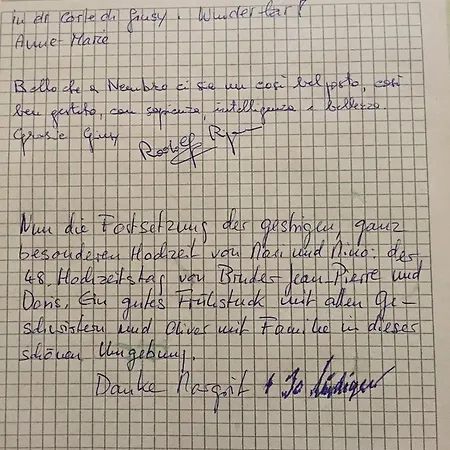 in der Corte di Giusy. Wunderbar!
Anne-Marie
Bello che a Nembro ci sia un così bel posto, così
ben gestito, con sapienza, intelligenza e bellezza.
Grazie Giusy
Nun die Fortsetzung der gestrigen, ganz
besonderen Hochzeit von Mari und Nino: der
48. Hochzeitstag von Bruder Jean-Pierre und
Doris. Ein gutes Frühstück mit allen Ge-
schwistern und Oliver mit Familie in dieser
schönen Umgebung.
Danke Margrit +